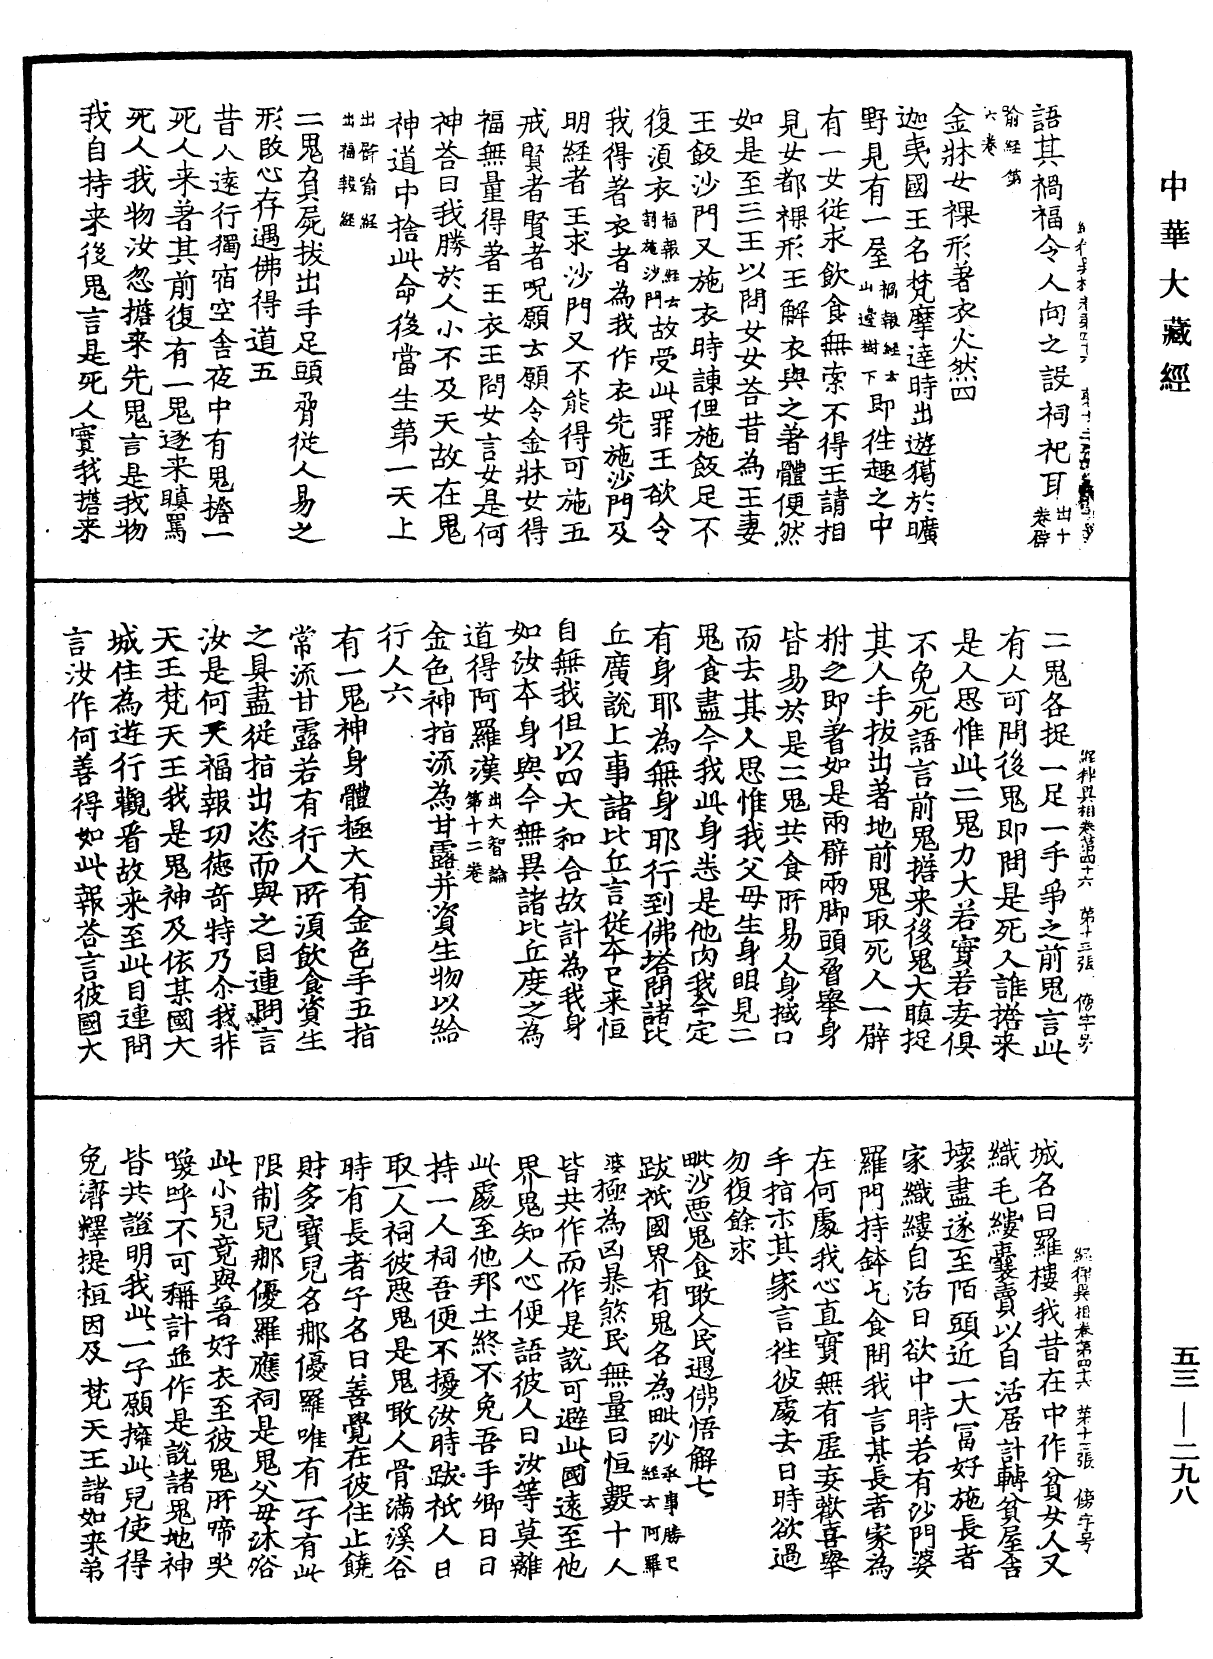 中華大藏經
語其禍福令人向之設祠祀耳出十卷譬
喻經第六卷
金牀女裸形著衣火然四
迦夷國王名梵摩達時出遊獦於曠
野見有一屋福報經云山邊樹下即往趣之中
有一女從求飲食無索不得王請相
見女都裸形王解衣與之著體便然
如是至三王以問女女荅昔為王妻
王飯沙門又施衣時諫但施飯足不
復湏衣福報經云剬施沙門故受此罪王欲令
我得著衣者為我作衣先施沙門及
明經者王求沙門又不能得可施五
戒賢者賢者呪願云願令金牀女得
福無量得著王衣王問女言女是何
神荅曰我勝於人小不及天故在鬼
神道中捨此命後當生第一天上
出譬喻經出福報經
二鬼負屍拔出手足頭脅從人易之
形改心存遇佛得道五
昔人遠行獨宿空舍夜中有鬼擔一
死人来著其前復有一鬼逐来瞋罵
死人我物汝忽擔来先鬼言是我物
我自持来後鬼言是死人實我擔来
二鬼各捉一足一手爭之前鬼言此
有人可問後鬼即問是死人誰擔来
是人思惟此二鬼力大若實若妄俱
不免死語言前鬼擔来後鬼大瞋捉
其人手拔出著地前鬼取死人一臂
拊之即著如是兩臂兩脚頭脅舉身
皆易於是二鬼共食所易人身拭口
而去其人思惟我父母生身眼見二
鬼食盡今我此身悉是他肉我今定
有身耶為無身耶行到佛塔問諸比
丘廣說上事諸比丘言從本已来恒
自無我但以四大和合故計為我身
如汝本身與今無異諸比丘度之為
道得阿羅漢出大智論第十二卷
金色神指流為甘露并資生物以給
行人六
有一鬼神身體極大有金色手五指
常流甘露若有行人所湏飲食資生
之具盡從指出恣而與之目連問言
汝是何天福報功德奇特乃尒我非
天王梵天王我是鬼神及依某國大
城住為遊行觀看故来至此目連問
言汝作何善得如此報荅言彼國大
經律異相卷第四十六　第十三張　傍字号
城名曰羅樓我昔在中作貧女人又
織毛縷囊賣以自活居計轉貧屋舍
壞盡遂至陌頭近一大富好施長者
家織縷自活日欲中時若有沙門婆
羅門持鉢乞食問我言某長者家為
在何處我心直實無有虛妄歡喜舉
手指示其家言往彼處去日時欲過
勿復餘求
毗沙惡鬼食噉人民遇佛悟解七
跋祇國界有鬼名為毗沙承事勝已經云阿羅
婆極為凶暴煞民無量日恒數十人
皆共作而作是說可避此國遠至他
界鬼知人心便語彼人曰汝等莫離
此處至他邦土終不免吾手卿日日
持一人祠吾便不擾汝時跋祇人日
取一人祠彼惡鬼是鬼噉人骨滿溪谷
時有長者子名曰善覺在彼住止饒
財多寶兒名那優羅唯有一子有此
限制兒那優羅應祠是鬼父母沐浴
此小兒竟與著好衣至彼鬼所啼哭
喚呼不可稱計並作是說諸鬼地神
皆共證明我此一子願擁此兒使得
免濟釋提桓因及梵天王諸如来弟
經律異相卷第四十六　第十二張　傍字号
五三——二九八